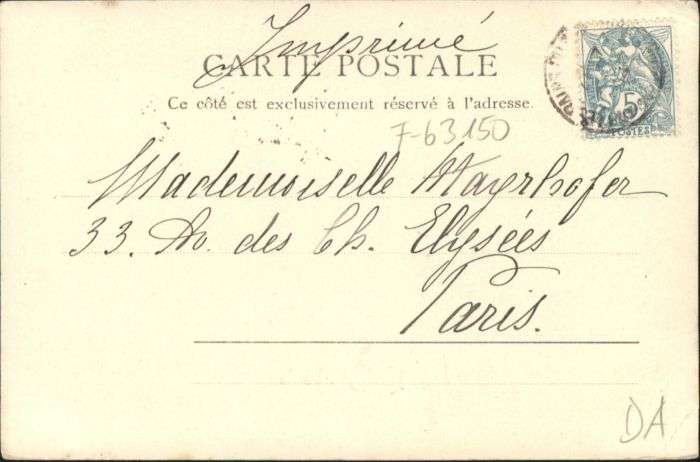 Imprimé
CARTE POSTALE
Ce côté est exclusivement réservé à l'adresse.
7-63150
Mademoiselle Mayerhofer
33. Av. des Ch. Elysées
Paris.
5c
POSTES
DA